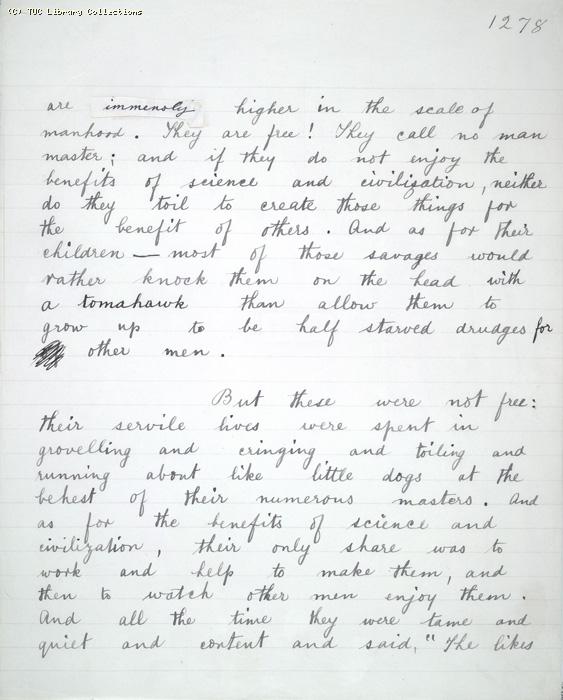 (C) TUC Library Collections
1278
are immensely higher in the scale of
manhood. They are free! They call no man
master; and if they do not enjoy the
benefits of science and civilization, neither
do they toil to create those things for
the benefit of others. And as for their
children — most of those savages would
rather knock them on the head with
a tomahawk than allow them to
grow up to be half starved drudges for
other men.
But these were not free:
their servile lives were spent in
grovelling and cringing and toiling and
running about like little dogs at the
behest of their numerous masters. And
as for the benefits of science and
civilization, their only share was to
work and help to make them, and
then to watch other men enjoy them.
And all the time they were tame and
quiet and content and said, "The likes